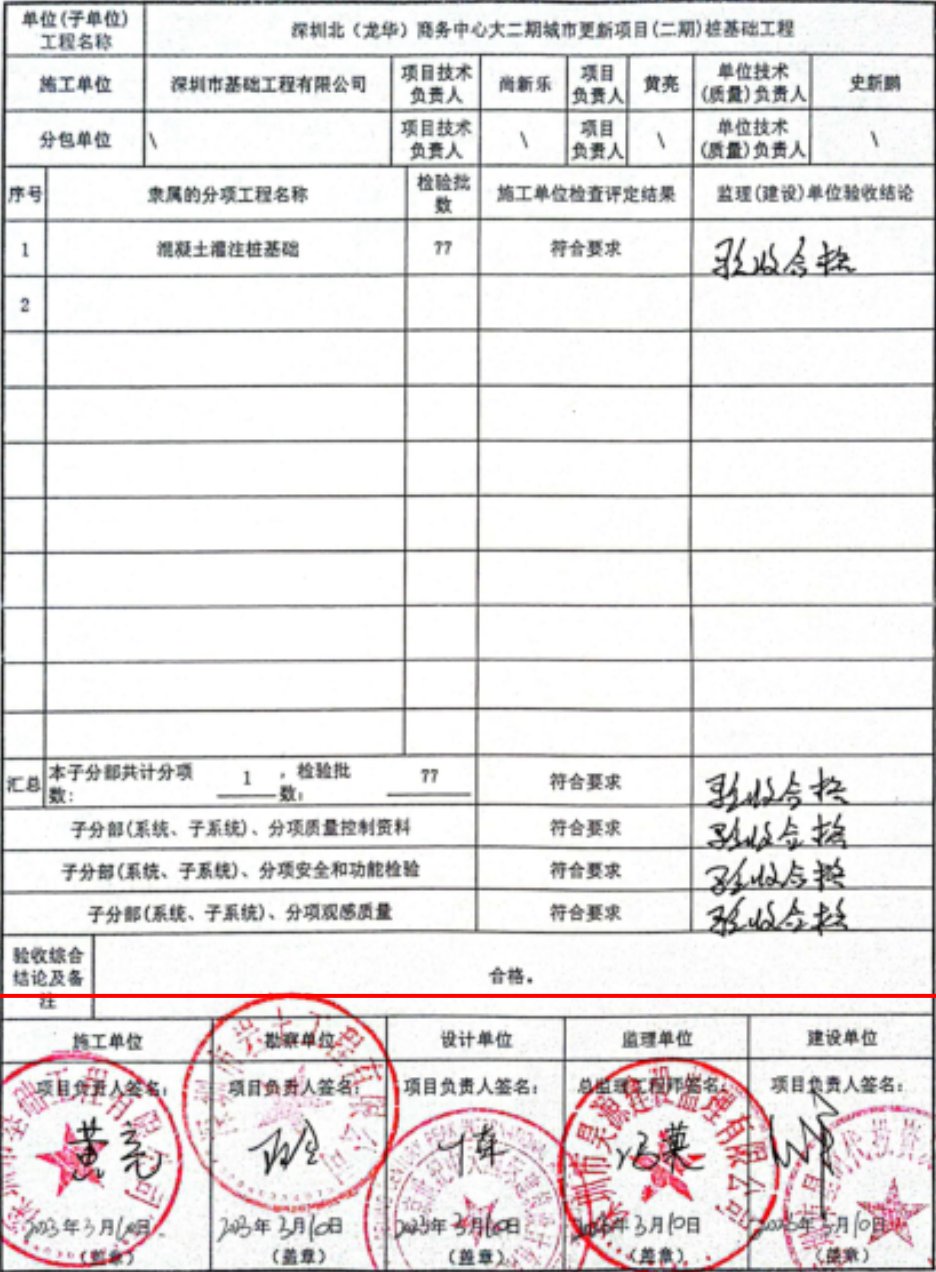 单位(子单位)
工程名称
深圳北（龙华）商务中心大二期城市更新项目(二期)桩基础工程
施工单位
深圳市基础工程有限公司
项目技术
负责人
尚新乐
项目
负责人
黄亮
单位技术
(质量)负责人
史新鹏
分包单位
\
项目技术
负责人
\
项目
负责人
\
单位技术
(质量)负责人
\
序号
隶属的分项工程名称
检验批
数
施工单位检查评定结果
监理(建设)单位验收结论
1
混凝土灌注桩基础
77
符合要求
验收合格
2
汇总
本子分部共计分项
数：
1
，检验批
数：
77
符合要求
验收合格
子分部(系统、子系统)、分项质量控制资料
符合要求
验收合格
子分部(系统、子系统)、分项安全和功能检验
符合要求
验收合格
子分部(系统、子系统)、分项观感质量
符合要求
验收合格
验收综合
结论及备
注
合格。
施工单位
勘察单位
设计单位
监理单位
建设单位
项目负责人签名：
项目负责人签名：
项目负责人签名：
总监理工程师签名：
项目负责人签名：
黄亮
2023年3月10日
2023年3月10日
2023年3月10日
2023年3月10日
2023年3月10日
(盖章)
(盖章)
(盖章)
(盖章)
(盖章)